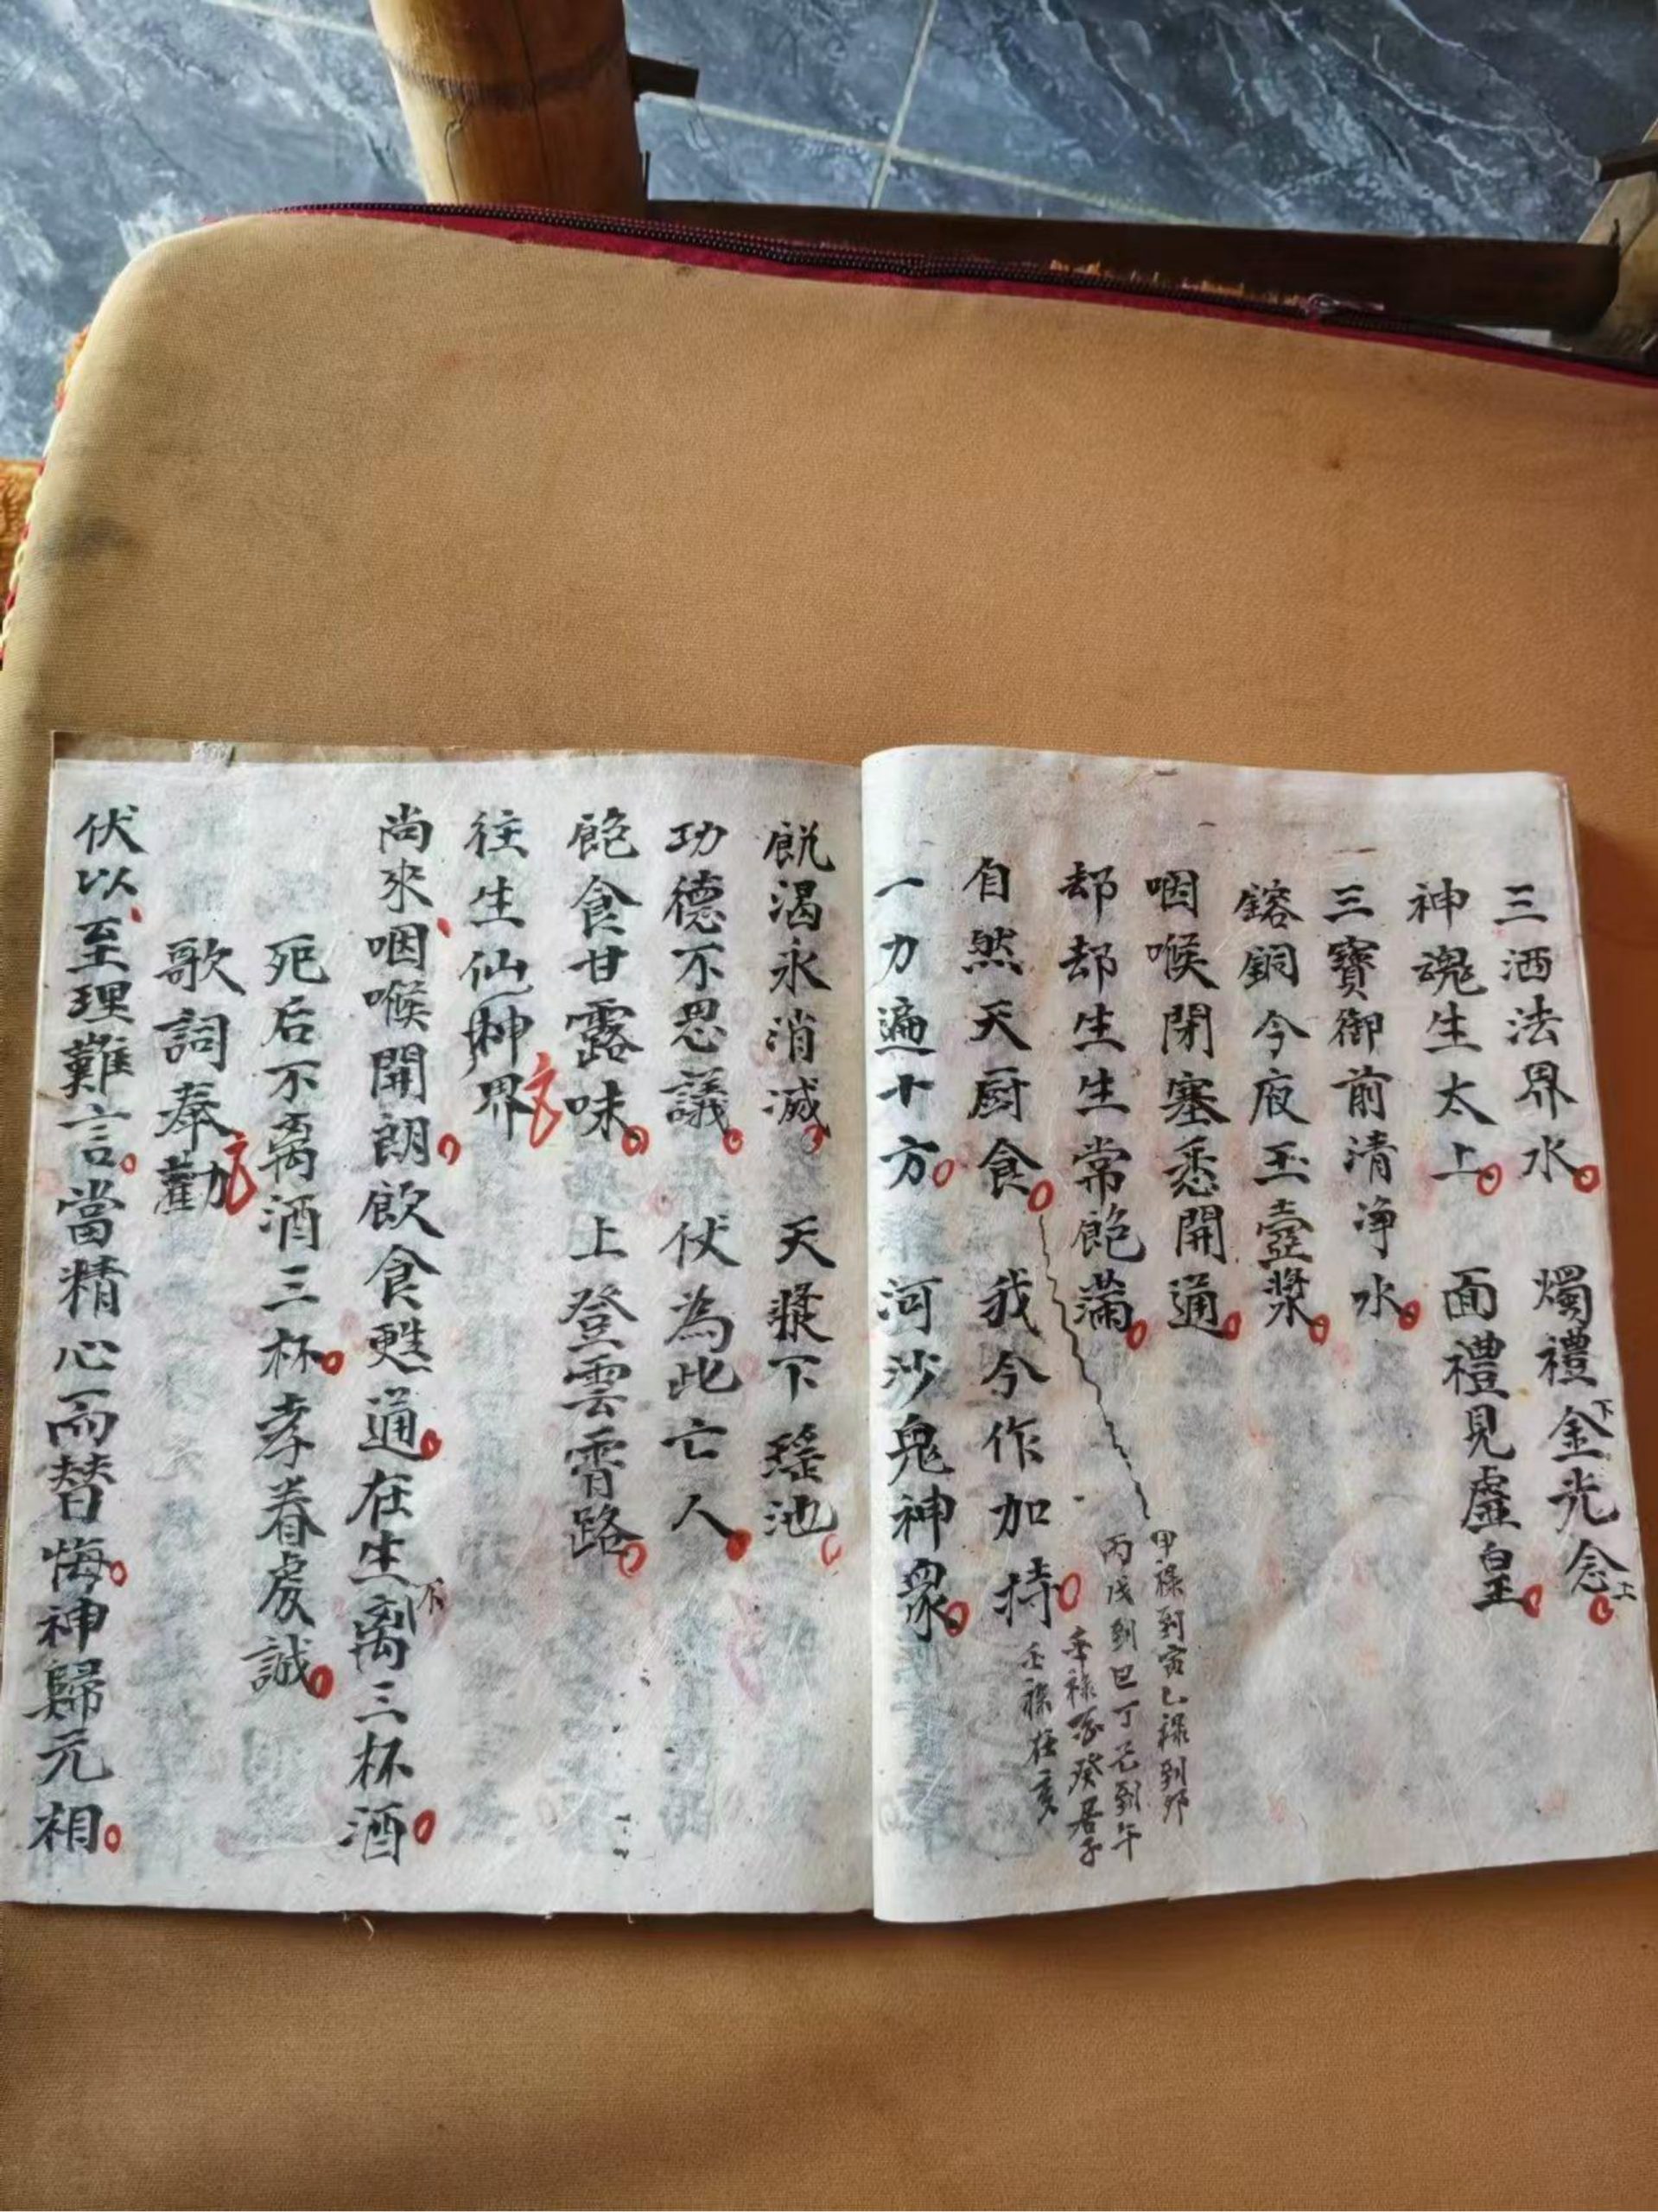 三洒法界水 燭禮金光念
下 上
神魂生太上 面禮見虛皇
三寶御前清淨水
鎔銅今夜玉壼漿
咽喉閉塞悉開通
却却生生常飽滿
自然天厨食 我今作加持
甲祿到寅乙祿到卯
丙戊到巳丁己到午
辛祿 癸居子
壬祿在亥
一力遍十方 河沙鬼神眾
渴永消滅 天漿下瑤池
功德不思議 伏為此亡人
飽食甘露味 上登雲霄路
往生仙神界
尚來咽喉開朗飲食甦通在生离三杯酒
不
死后不离酒三杯孝眷虔誠
歌詞奉勸
伏以至理難言當精心而替悔神歸元相